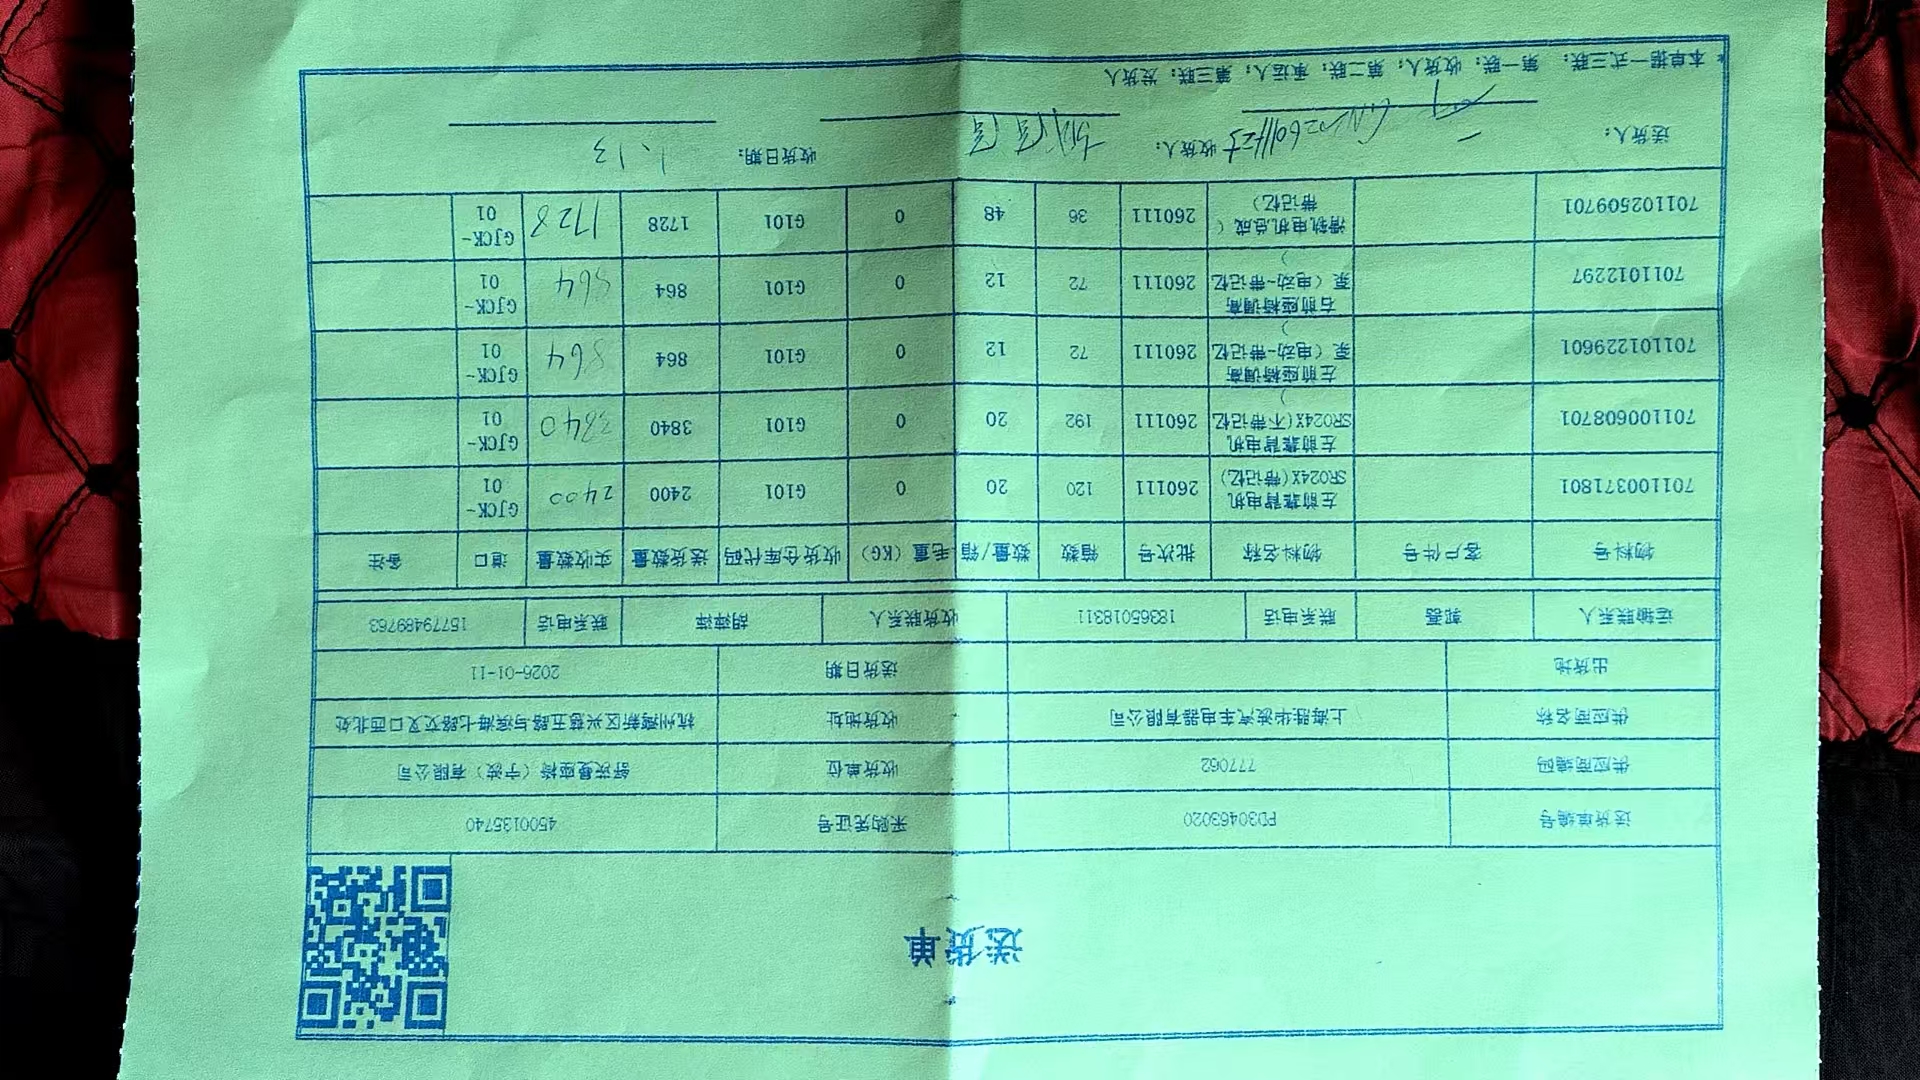 送货单
送货单编号 PD30463020 采购凭证号 4500135740
供应商编码 777062 收货单位 舒茨曼座椅（宁波）有限公司
供应商名称 上海胜华波汽车电器有限公司 收货地址 杭州湾新区兴慈五路与滨海七路交叉口西北处
出货地 送货日期 2026-01-11
运输联系人 郭磊 联系电话 18365018311 收货联系人 胡萍萍 联系电话 15779489763
物料号 客户件号 物料名称 批次号 箱数 数量/箱 毛重（KG） 收货仓库代码 送货数量 实收数量 道口 备注
701100371801 左前靠背电机SR024X(带记忆) 260111 120 20 0 G101 2400 2400 GJCK-01
701100608701 左前靠背电机SR024X(不带记忆) 260111 192 20 0 G101 3840 3840 GJCK-01
701101229601 左前座椅调高泵（电动-带记忆） 260111 72 12 0 G101 864 864 GJCK-01
7011012297 右前座椅调高泵（电动-带记忆） 260111 72 12 0 G101 864 864 GJCK-01
701102509701 滑轨电机总成（带记忆） 260111 36 48 0 G101 1728 1728 GJCK-01
送货人： 收货人： 收货日期： 1.13
* 本单据一式三联： 第一联：收货人； 第二联：承运人； 第三联：发货人